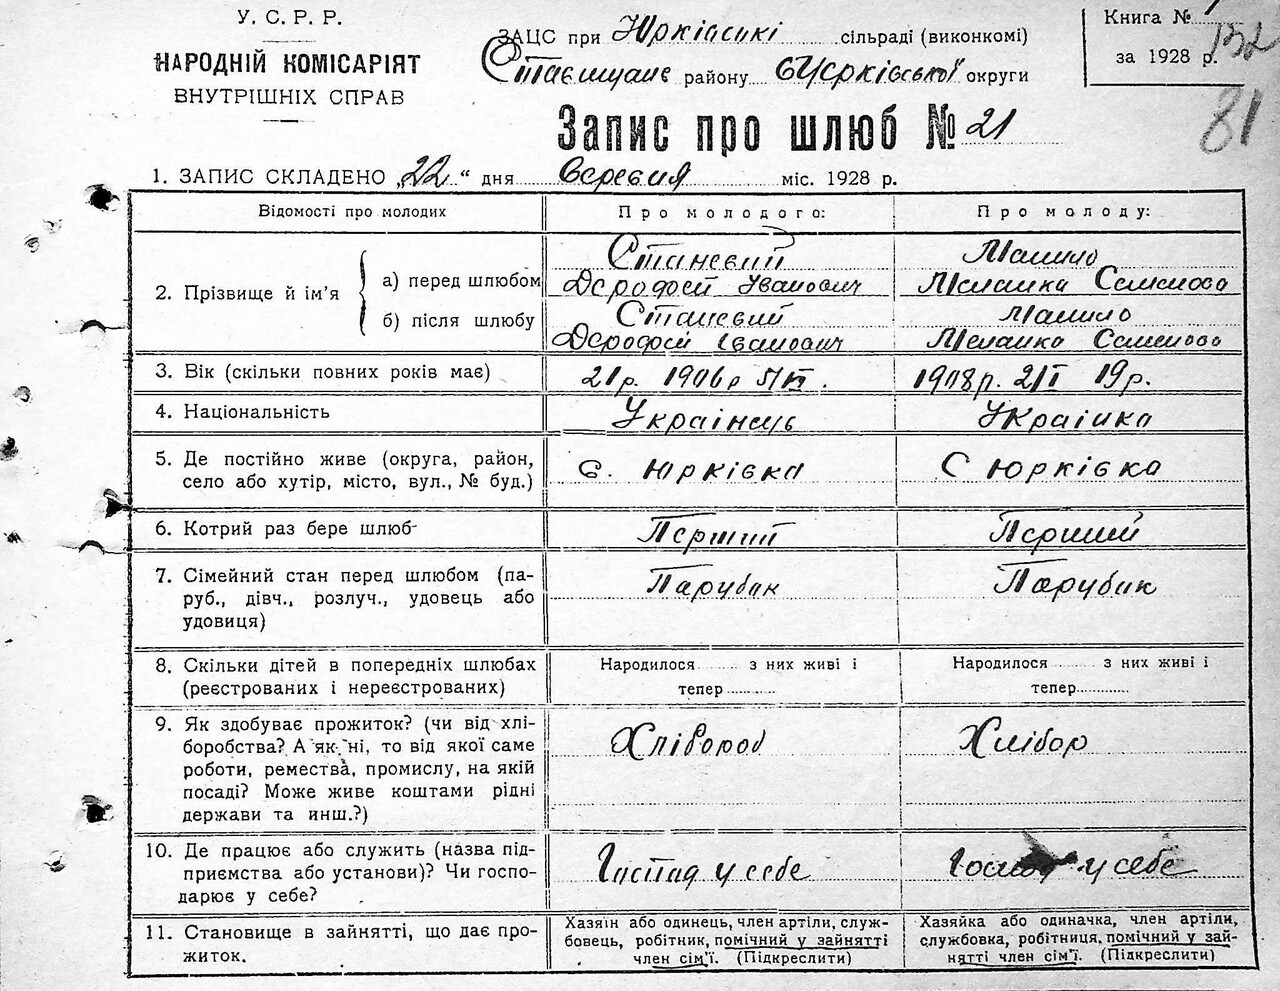 У. С. Р. Р.
НАРОДНІЙ КОМІСАРІЯТ
ВНУТРІШНІХ СПРАВ
ЗАЦС при Юрківські сільраді (виконкомі)
району округи
Книга №
за 1928 р. 132
81
Запис про шлюб № 21
1. ЗАПИС СКЛАДЕНО „22“ дня Вересня міс. 1928 р.
Відомості про молодих Про молодого: Про молоду:
2. Прізвище й ім'я
а) перед шлюбом
Станевий
Дорофей Іванович
Мамило
Меланка Семенова
б) після шлюбу
Станевий
Дорофей Іванович
Мамило
Меланка Семенова
3. Вік (скільки повних років має) 21р. 1906р 1908р. 2/І 19р.
4. Національність Українець Украінка
5. Де постійно живе (округа, район,
село або хутір, місто, вул., № буд.)
с. Юрківка
С Юрківка
6. Котрий раз бере шлюб Перший Перший
7. Сімейний стан перед шлюбом (па-
руб., дівч., розлуч., удовець або
удовиця)
Парубак
Парубак
8. Скільки дітей в попередніх шлюбах
(реєстрованих і нереєстрованих)
Народилося з них живі і
тепер
Народилося з них живі і
тепер
9. Як здобуває прожиток? (чи від хлі-
боробства? А як ні, то від якої саме
роботи, ремества, промислу, на якій
посаді? Може живе коштами рідні
держави та инш.?)
Хлібороб
Хлібор
10. Де працює або служить (назва під-
приємства або установи)? Чи госпо-
дарює у себе?
Гаспад у себе
Госпад у себе
11. Становище в зайнятті, що дає про-
житок.
Хазяїн або одинець, член артіли, служ-
бовець, робітник, помічний у зайнятті
член сім'ї. (Підкреслити)
Хазяйка або одиначка, член артіли,
службовка, робітниця, помічний у зай-
нятті член сім'ї. (Підкреслити)